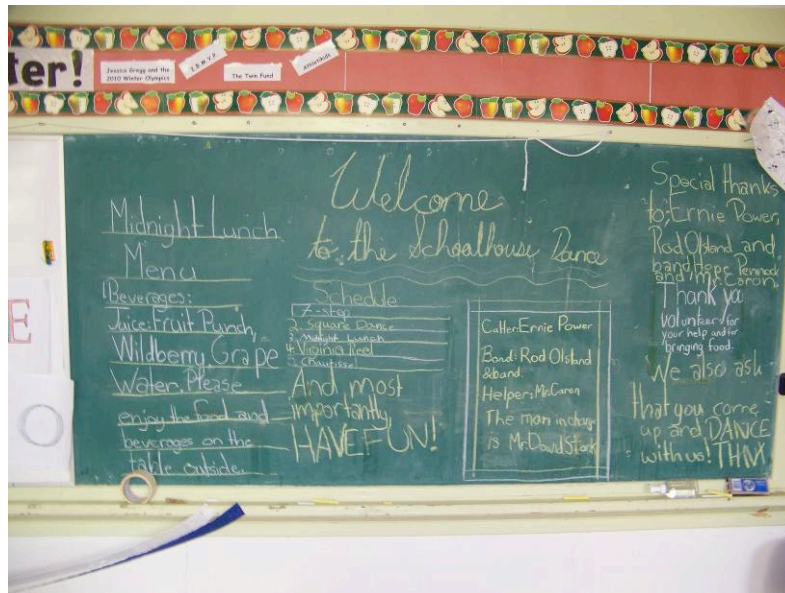 ter!
Jessica Gregg and the
2010 Winter Olympics
The Twin Fund
Midnight Lunch
Menu
Beverages:
Juice: Fruit Punch,
Wildberry, Grape
Water. Please
enjoy the food and
beverages on the
table outside.
Welcome
to the Schoolhouse Dance
Schedule
1. 7-step
2. Square Dance
3. Midnight Lunch
4. Virginia Reel
5.
And most
importantly,
HAVE FUN!
Caller: Ernie Power
Band: Rod Olstand
& band.
Helper: Mr. Caron
The man in charge
is Mr. David Stark
Special thanks
to: Ernie Power,
Rod Olstand and
band, Hope Pennock
and mr. Caron.
Thank you
volunteers for
your help and for
bringing food.
We also ask
that you come
up and DANCE
with us! THNX
E